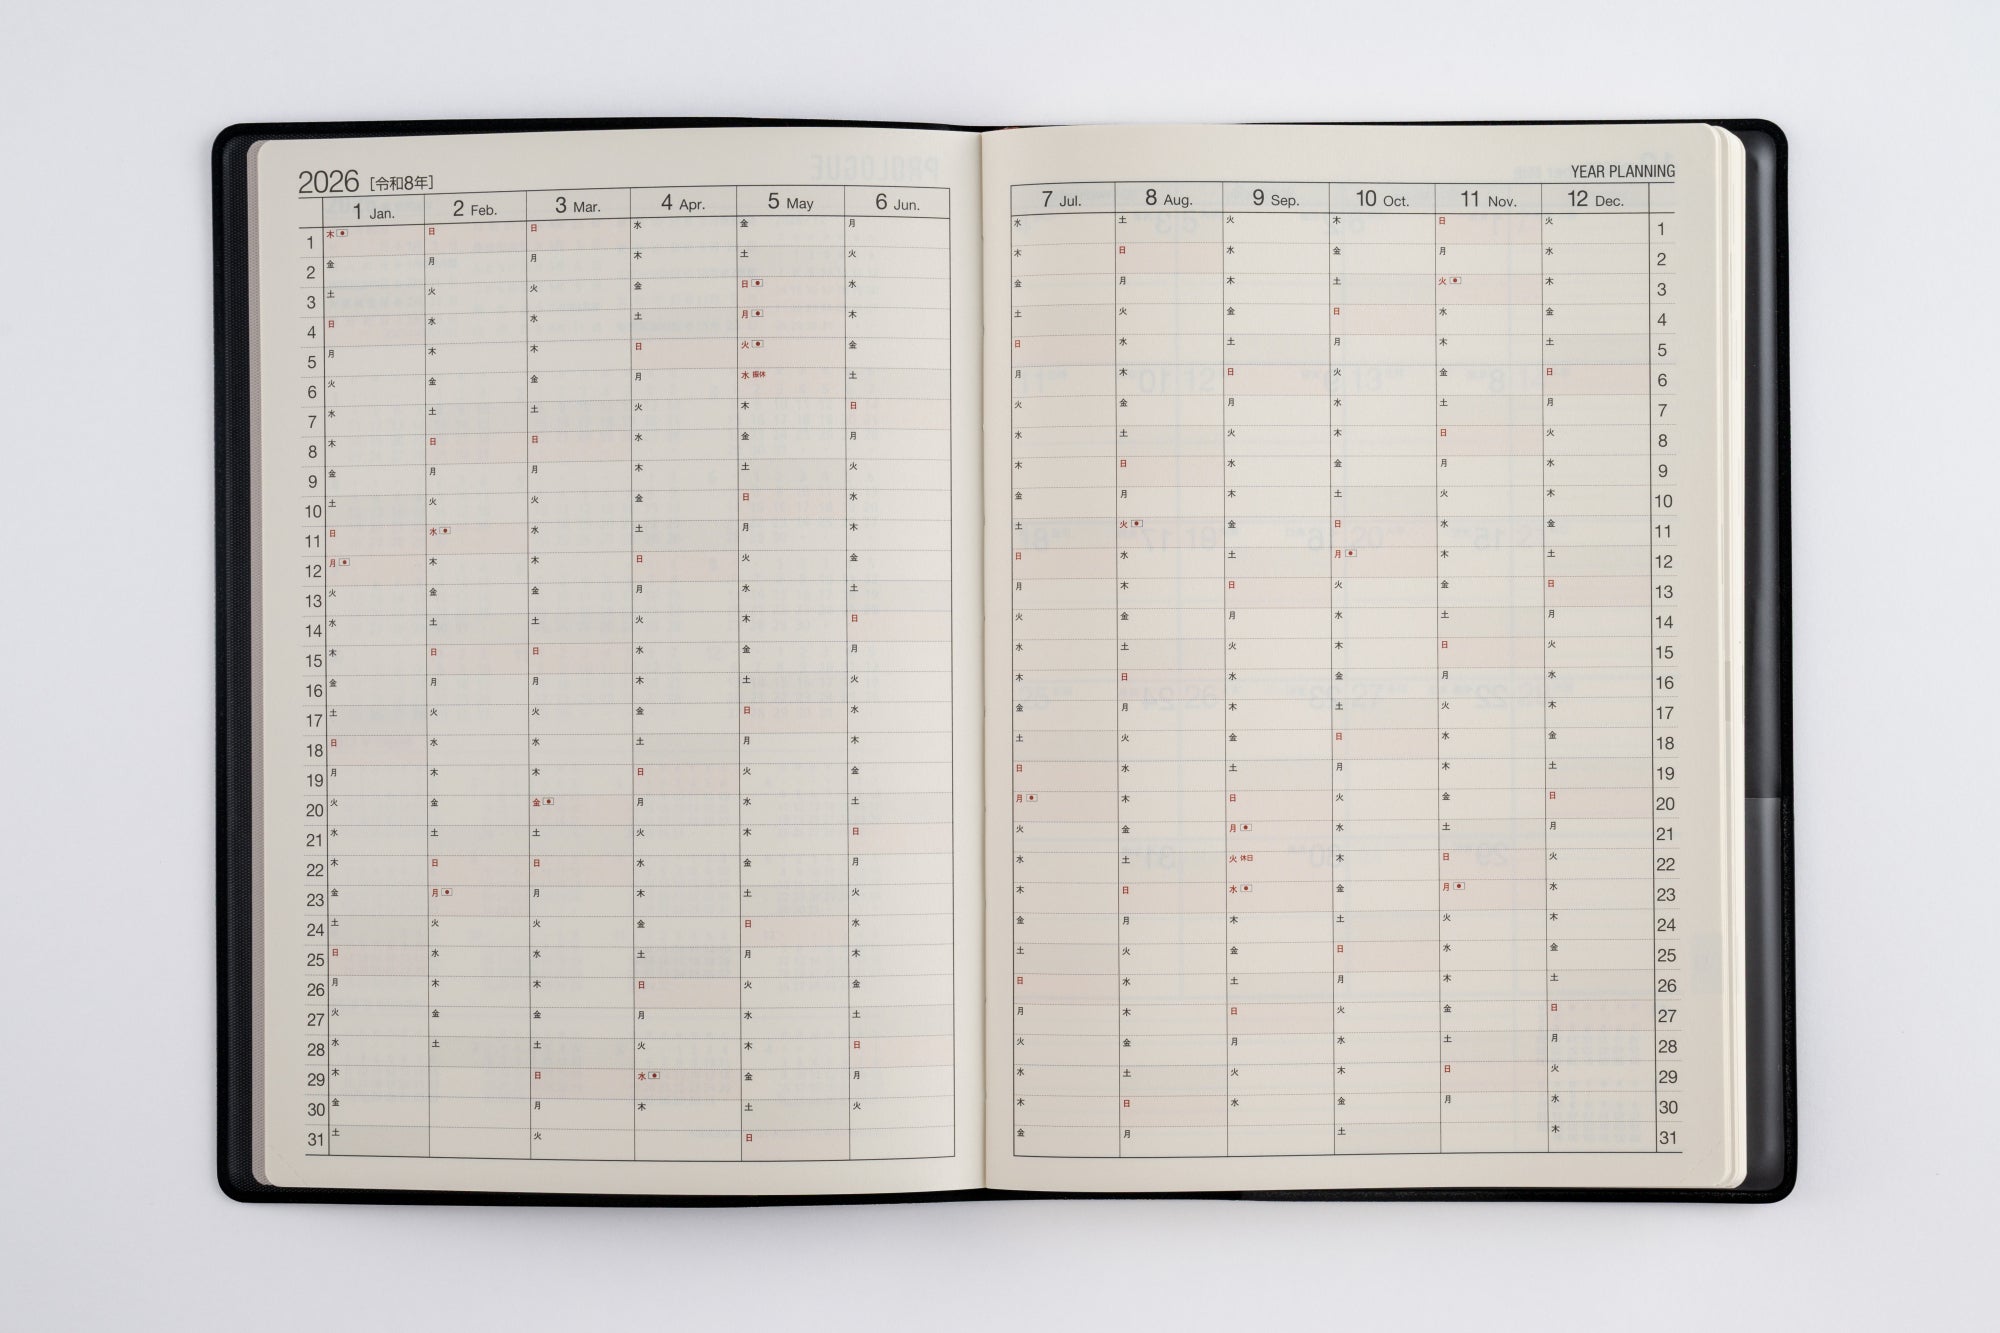 2026 [令和8年]
YEAR PLANNING
1 Jan. 2 Feb. 3 Mar. 4 Apr. 5 May 6 Jun. 7 Jul. 8 Aug. 9 Sep. 10 Oct. 11 Nov. 12 Dec.
1 木 日 日 水 金 月 水 土 火 木 日 火 1
2 金 月 月 木 土 火 木 日 水 金 月 水 2
3 土 火 火 金 日 水 金 月 木 土 火 木 3
4 日 水 水 土 月 木 土 火 金 日 水 金 4
5 月 木 木 日 火 金 日 水 土 月 木 土 5
6 火 金 金 月 水 振休 土 月 木 日 火 金 日 6
7 水 土 土 火 木 日 火 金 月 水 土 月 7
8 木 日 日 水 金 月 水 土 火 木 日 火 8
9 金 月 月 木 土 火 木 日 水 金 月 水 9
10 土 火 火 金 日 水 金 月 木 土 火 木 10
11 日 水 水 土 月 木 土 火 金 日 水 金 11
12 月 木 木 日 火 金 日 水 土 月 木 土 12
13 火 金 金 月 水 土 月 木 日 火 金 日 13
14 水 土 土 火 木 日 火 金 月 水 土 月 14
15 木 日 日 水 金 月 水 土 火 木 日 火 15
16 金 月 月 木 土 火 木 日 水 金 月 水 16
17 土 火 火 金 日 水 金 月 木 土 火 木 17
18 日 水 水 土 月 木 土 火 金 日 水 金 18
19 月 木 木 日 火 金 日 水 土 月 木 土 19
20 火 金 金 月 水 土 月 木 日 火 金 日 20
21 水 土 土 火 木 日 火 金 月 水 土 月 21
22 木 日 日 水 金 月 水 土 火 休日 木 日 火 22
23 金 月 月 木 土 火 木 日 水 金 月 水 23
24 土 火 火 金 日 水 金 月 木 土 火 木 24
25 日 水 水 土 月 木 土 火 金 日 水 金 25
26 月 木 木 日 火 金 日 水 土 月 木 土 26
27 火 金 金 月 水 土 月 木 日 火 金 日 27
28 水 土 土 火 木 日 火 金 月 水 土 月 28
29 木 日 水 金 月 水 土 火 木 日 火 29
30 金 月 木 土 火 木 日 水 金 月 水 30
31 土 火 日 金 月 土 木 31